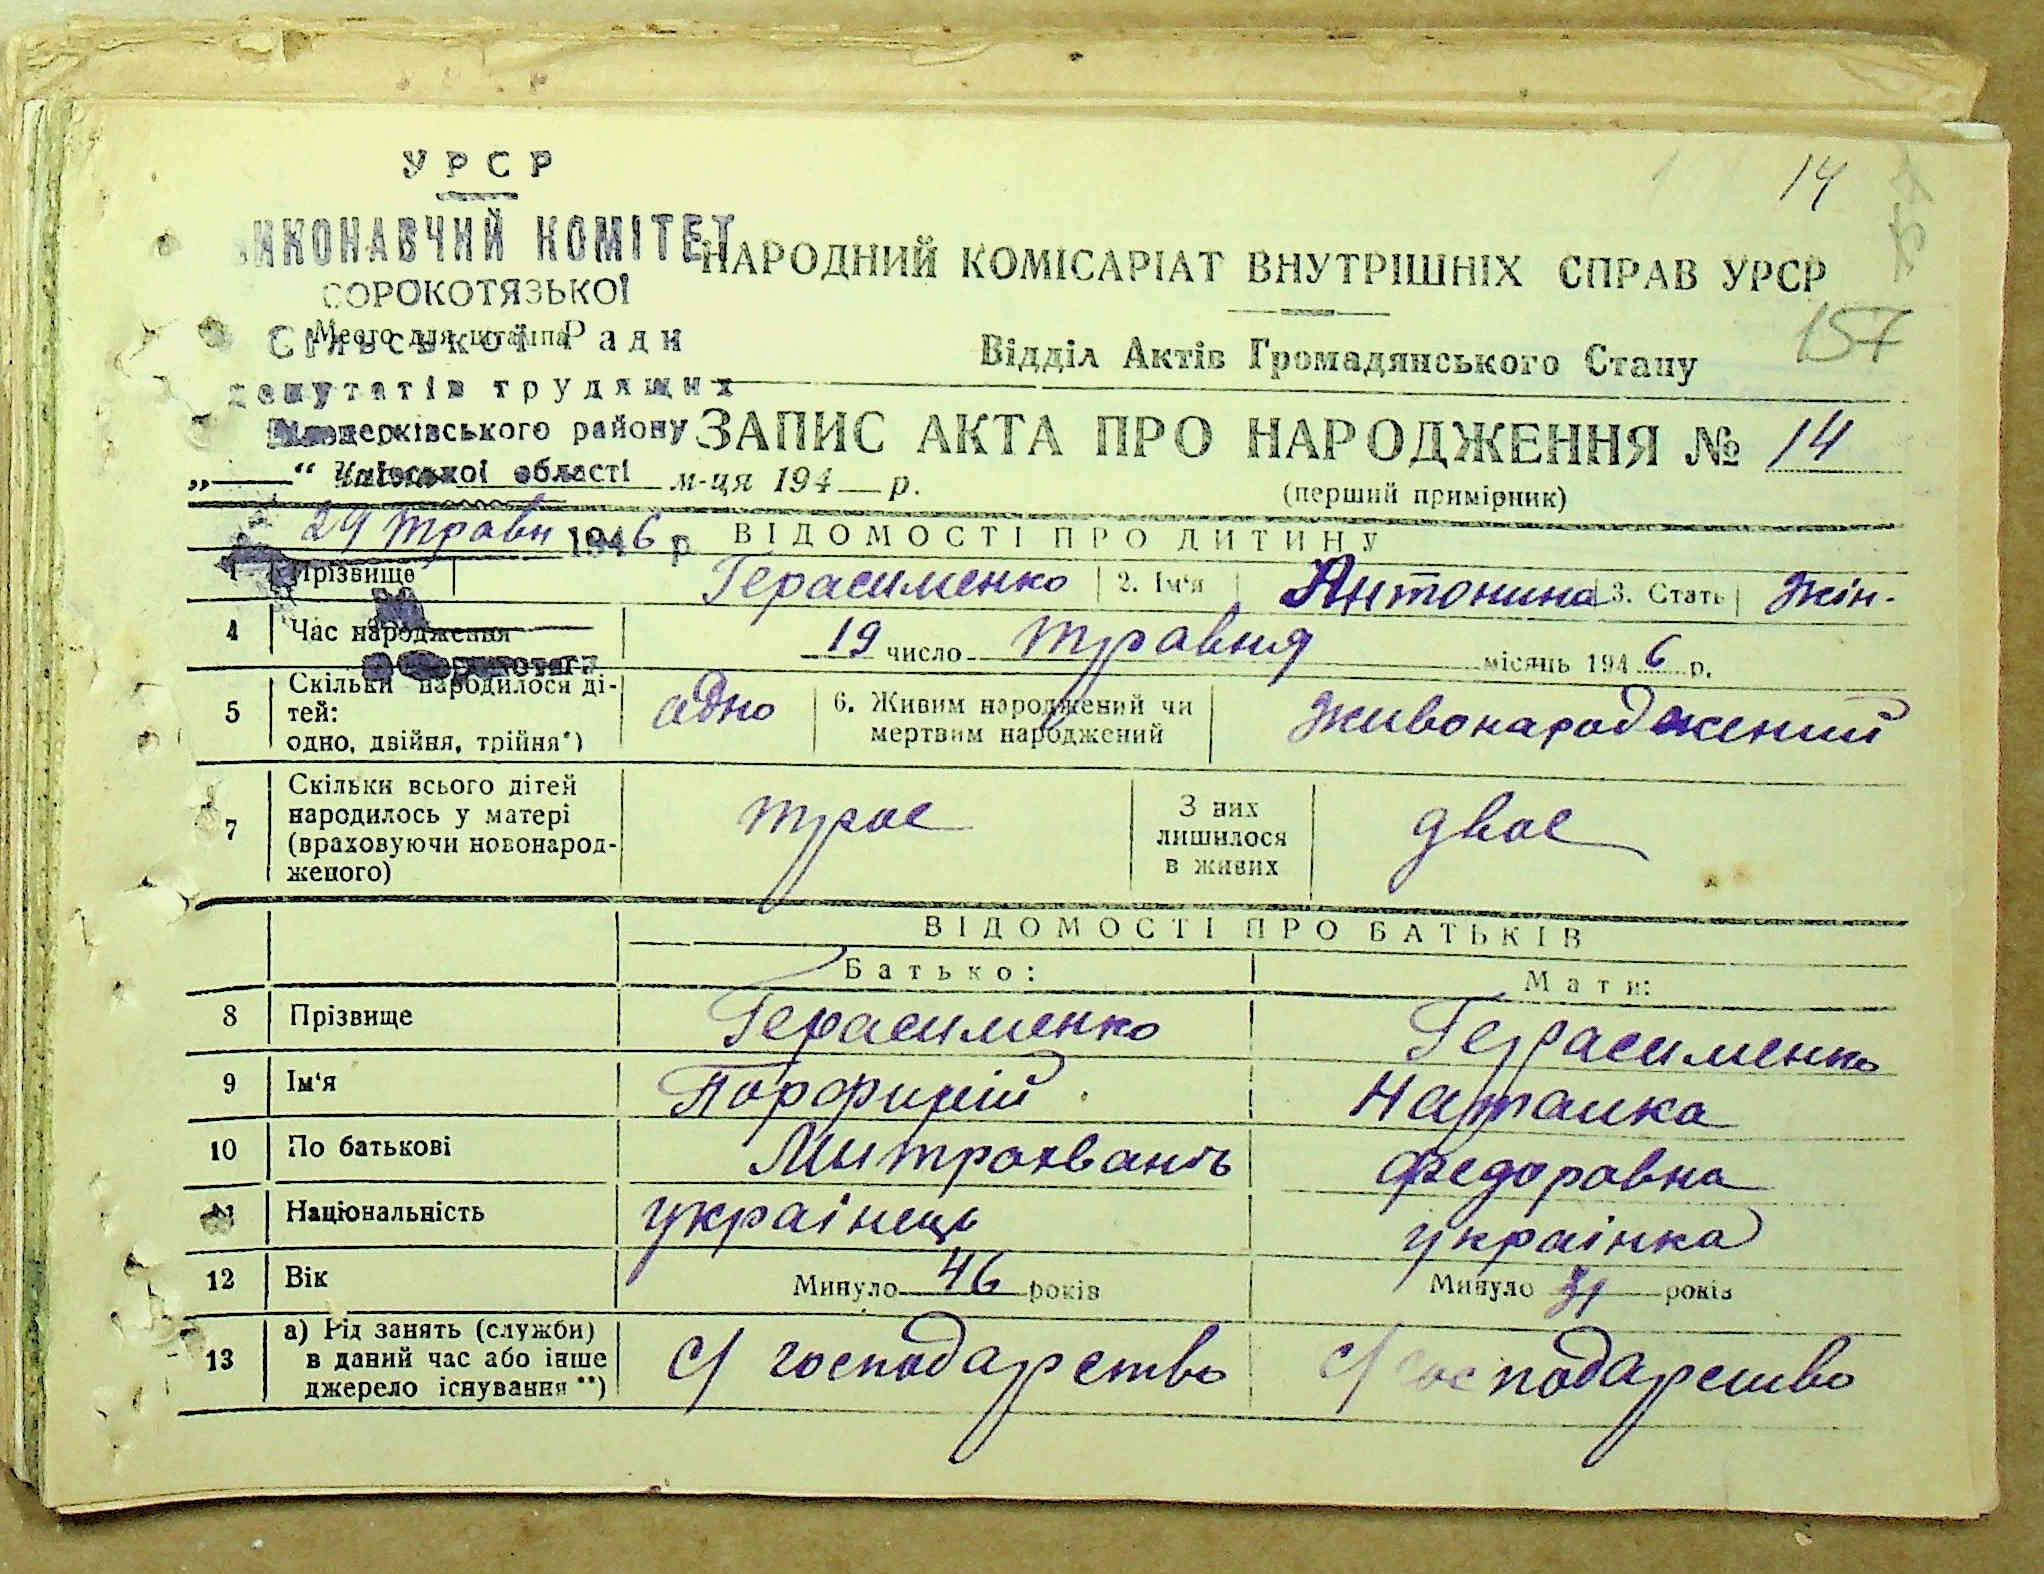 УРСР
14
ВИКОНАВЧИЙ КОМІТЕТ
НАРОДНИЙ КОМІСАРІАТ ВНУТРІШНІХ СПРАВ УРСР
СОРОКОТЯЗЬКОЇ
Место для штампа
Сільської Ради
157
Відділ Актів Громадянського Стану
депутатів трудящих
району
ЗАПИС АКТА ПРО НАРОДЖЕННЯ № 14
„—“ Київської області м-ця 194 р.
(перший примірник)
29 травн 1946 р
ВІДОМОСТІ ПРО ДИТИНУ
1 Прізвище Герасименко 2. Ім‘я Антонина 3. Стать жін.
4 Час народження 19 число травня місяць 1946 р.
5 Скільки народилося ді-
тей:
одно, двійня, трійня*)
адно
6. Живим народжений чи
мертвим народжений
живонароджений
7 Скільки всього дітей
народилось у матері
(враховуючи новонарод-
женого)
трое
З них
лишилося
в живих
двое
ВІДОМОСТІ ПРО БАТЬКІВ
Батько: Мати:
8 Прізвище Герасименко Герасименко
9 Ім‘я Порфирій Наталка
10 По батькові Федоровна
11 Національність українець українка
12 Вік Минуло 46 років Минуло 31 років
13 а) Рід занять (служби)
в даний час або інше
джерело існування **)
с/господарство с/господарство